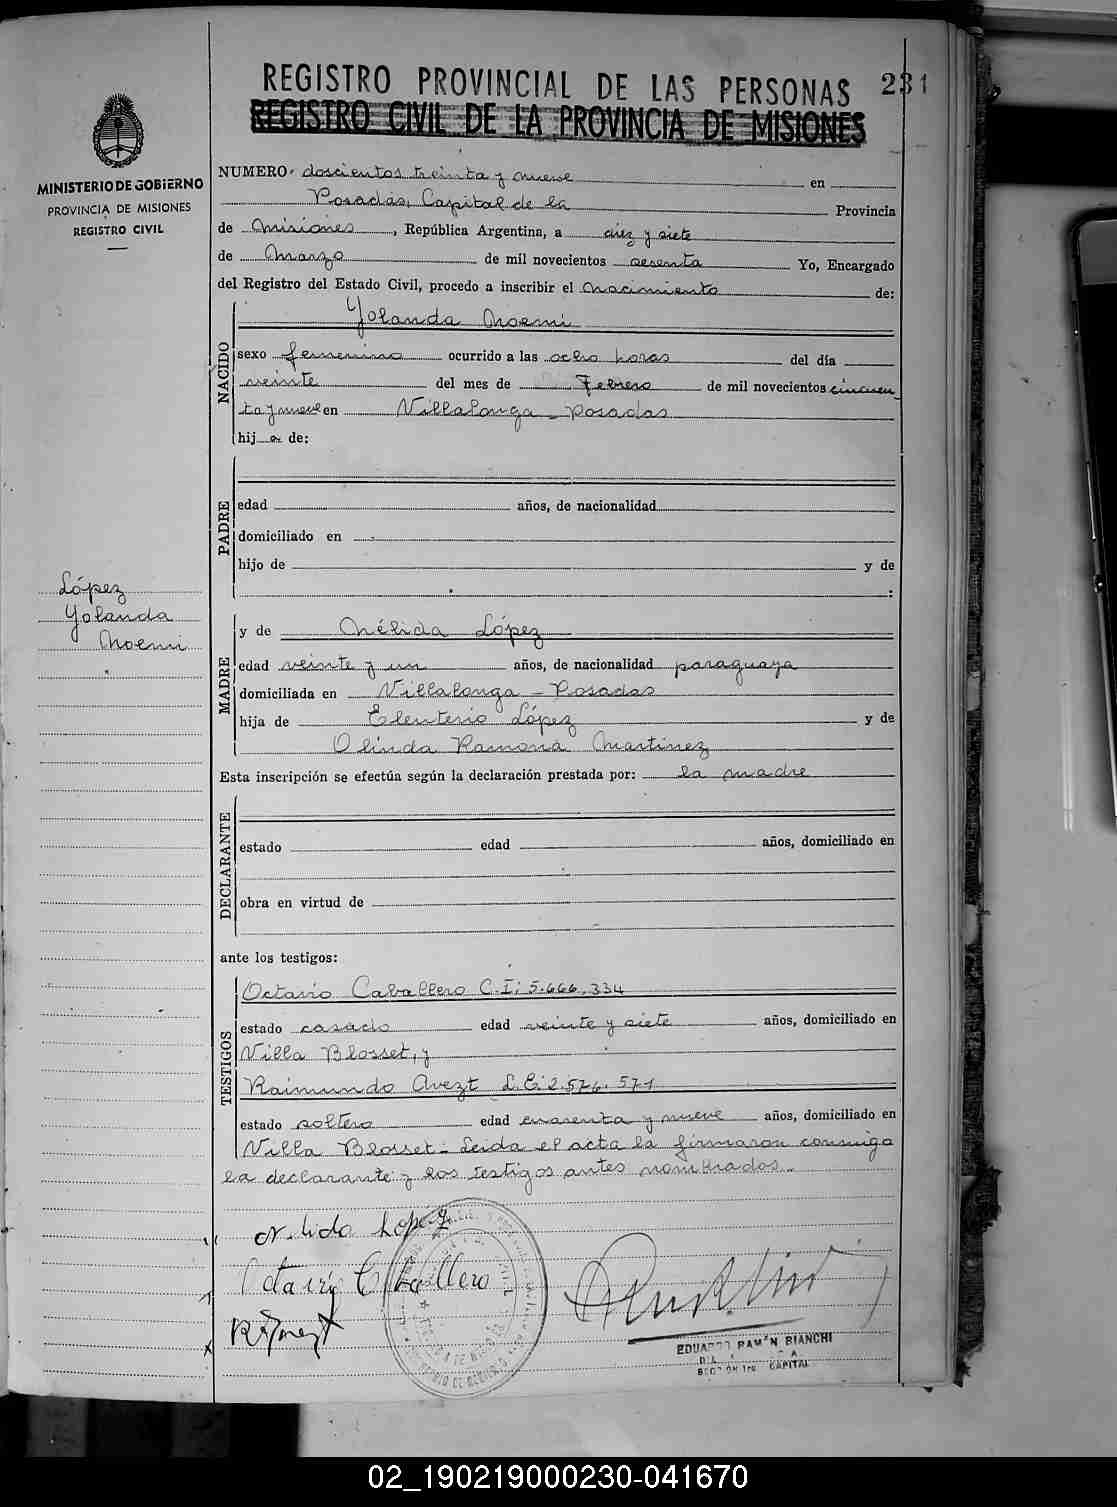 REGISTRO PROVINCIAL DE LAS PERSONAS 231
REGISTRO CIVIL DE LA PROVINCIA DE MISIONES
MINISTERIO DE GOBIERNO
PROVINCIA DE MISIONES
REGISTRO CIVIL
NUMERO doscientos treinta y nueve en
Posadas, Capital de la Provincia
de Misiones, República Argentina, a diez y siete
de Marzo de mil novecientos sesenta Yo, Encargado
del Registro del Estado Civil, procedo a inscribir el nacimiento de:
NACIDO
Yolanda Noemi
sexo femenino ocurrido a las ocho horas del día
veinte del mes de Febrero de mil novecientos cincuen
ta y nueve en Villalonga - Posadas
hija de:
PADRE
edad años, de nacionalidad
domiciliado en
hijo de y de
:
López
Yolanda
Noemi
MADRE
y de Nélida López
edad veinte y un años, de nacionalidad paraguaya
domiciliada en Villalonga - Posadas
hija de Eleuterio López y de
Olinda Ramona Martinez
Esta inscripción se efectúa según la declaración prestada por: la madre
DECLARANTE
estado edad años, domiciliado en
obra en virtud de
ante los testigos:
TESTIGOS
Octavio Caballero C.I: 5.666.334
estado casado edad veinte y siete años, domiciliado en
Villa Blosset, y
Raimundo Avezt L.E: 2.576.571
estado soltero edad cuarenta y nueve años, domiciliado en
Villa Blosset - Leida el acta la firmaron conmigo
la declarante y los testigos antes nombrados -
Nelida Lopez
Octavio Caballero
EDUARDO RAMÓN BIANCHI
CAPITAL
02_190219000230-041670